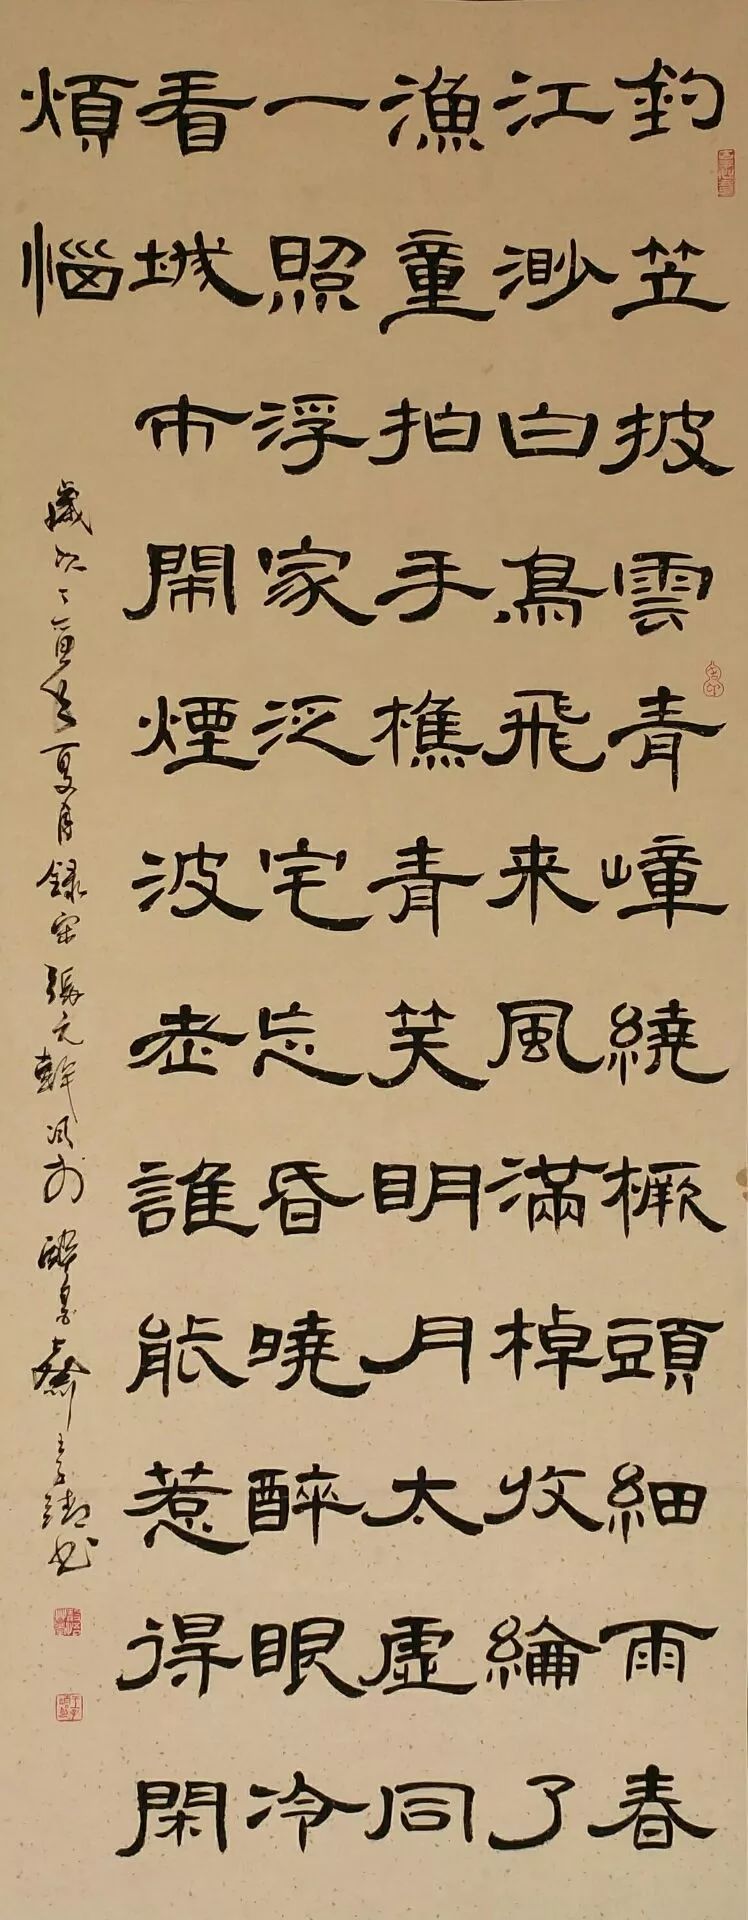 釣笠披雲青嶂繞橛頭細雨春
江渺白鳥飛来風滿棹收綸了
漁童拍手樵青笑明月太虛同
一照浮家泛宅忘昏曉醉眼冷
看城市鬧煙波老誰能惹得閑
煩惱
歲次丁酉夏月錄宋張元幹詞於醉墨齋王子书